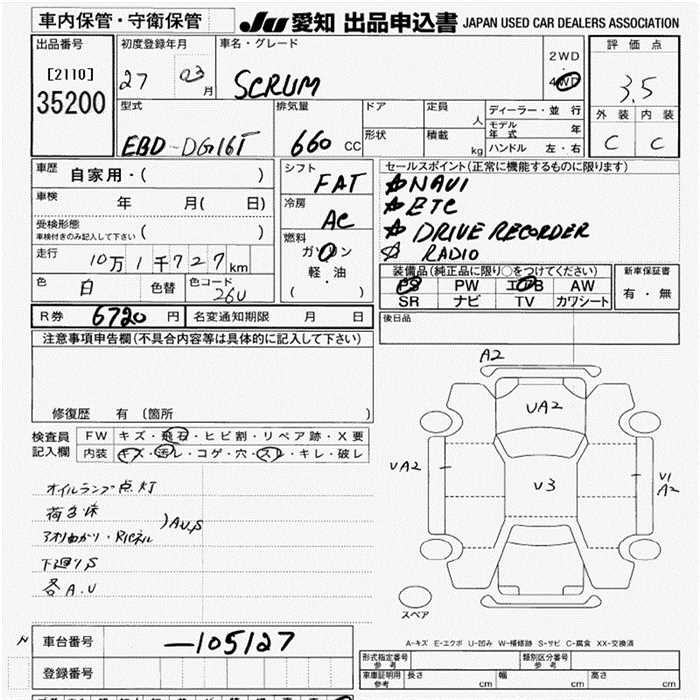 車内保管・守衛保管 JU 愛知 出品申込書 JAPAN USED CAR DEALERS ASSOCIATION
出品番号 初度登録年月 車名・グレード 2WD 評価点
[2110] 27 03月 SCRUM ・ 3.5
35200 4WD 外装 内装
型式 排気量 ドア 定員 人 ディーラー・並行 C C
EBD-DG16T 660 CC 形状 積載 kg モデル年式 年
ハンドル 左・右
車歴 自家用・( ) シフト FAT セールスポイント(正常に機能するものに限ります)
車検 年 月( 日) 冷房 AC ☆NAVI
受検形態 ( ) ☆ETC
車検付きのみ記入して下さい 燃料 ☆DRIVE RECORDER
走行 10万1千727km ガソリン ☆RADIO
色 白 色替 色コード 26U 軽・油 装備品(純正品に限り○をつけてください) 新車保証書
( ) PS PW エアB AW 有・無
SR ナビ TV カワシート
R券 6720 円 名変通知期限 月 日 後日品
注意事項申告欄(不具合内容等は具体的に記入して下さい)
修復歴 有 (箇所 )
検査員 FW キズ・飛石・ヒビ割・リペア跡・X要
記入欄 内装 キズ・汚レ・コゲ・穴・スレ・キレ・破レ
A2
UA2
UA2
U3
U1
A2
オイルランプ点灯
荷台床
アオリ
)AU,S
下廻リS
各A.U
スペア
A-キズ E-エクボ U-凹み W-補修跡 S-サビ C-腐食 XX-交換済
車台番号 -105127
登録番号
形式指定番号 参考 類別区分番号 参考
車庫証明用 参考 長さ cm 幅 cm 高さ cm